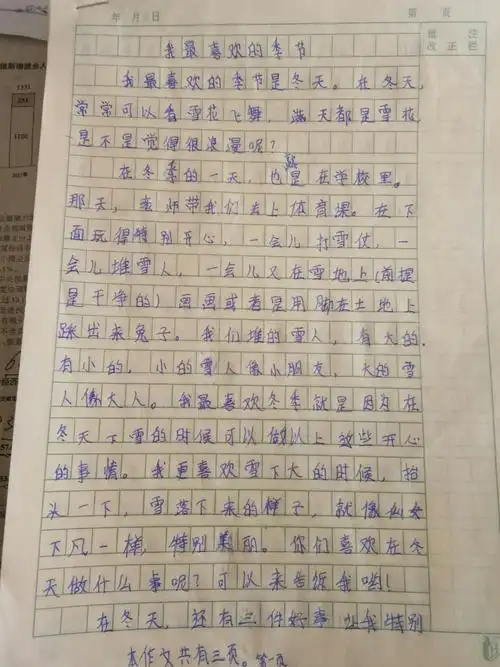 年 月 日
第 页
批 注
改 正 栏
我最喜欢的季节
我最喜欢的季节是冬天。在冬天,
常常可以看雪花飞舞,满天都是雪花
是不是觉得很浪漫呢?
在冬季的一天,也是在学校里。
那天,老师带我们去上体育课。在下
面玩得特别开心,一会儿打雪仗,一
会儿堆雪人,一会儿又在雪地上(前提
是干净的)画画或者是用脚在土地上
踩出来兔子。我们堆的雪人,有大的.
有小的,小的雪人像小朋友,大的雪
人像大人。我最喜欢冬季就是因为在
冬天下雪的时候可以做以上这些开心
的事情。我更喜欢雪下大的时候,抬
头一下,雪落下来的样子,就像仙女
下凡一样,特别美丽。你们喜欢在冬
天做什么事呢?可以来告诉我哟!
在冬天,还有三件好事让我特别
本作文共有三页。第一页